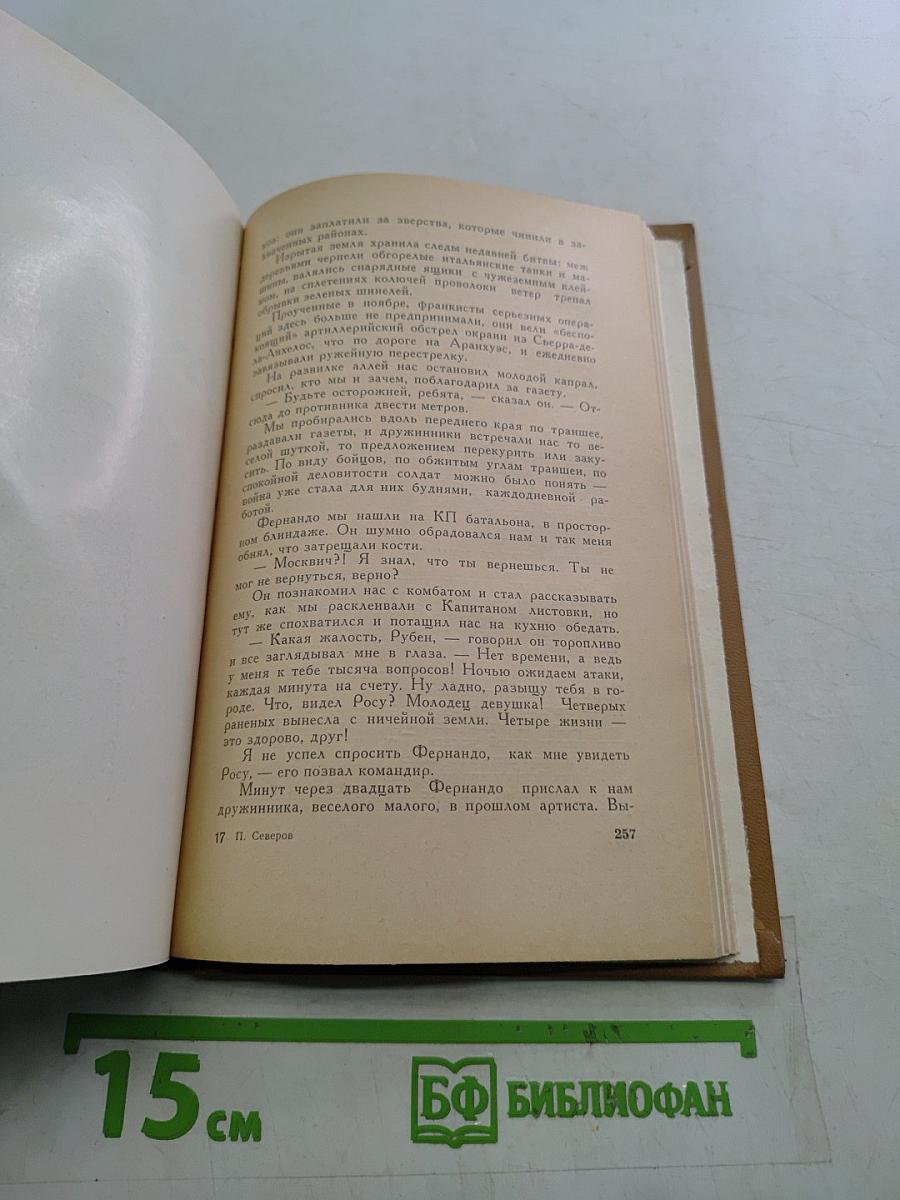 ков: они заплатили за зверства, которые чинили в за-
хваченных районах.
Изрытая земля хранила следы недавней битвы: меж
деревьями чернели обгорелые итальянские танки и ма-
шины, валялись снарядные ящики с чужеземным клей-
мом, на сплетениях колючей проволоки ветер трепал
обрывки зеленых шинелей.
Проученные в ноябре, франкисты серьезных опера-
ций здесь больше не предпринимали, они вели «беспо-
коящий» артиллерийский обстрел окраин из Сьерра-де-
ла-Анхелос, что по дороге на Аранхуэс, и ежедневно
завязывали ружейную перестрелку.
На развилке аллей нас остановил молодой капрал,
спросил, кто мы и зачем, поблагодарил за газету.
— Будьте осторожней, ребята, — сказал он. — От-
сюда до противника двести метров.
Мы пробирались вдоль переднего края по траншее,
раздавали газеты, и дружинники встречали нас то ве-
селой шуткой, то предложением перекурить или заку-
сить. По виду бойцов, по обжитым углам траншеи, по
спокойной деловитости солдат можно было понять —
война уже стала для них буднями, каждодневной ра-
ботой.
Фернандо мы нашли на КП батальона, в простор-
ном блиндаже. Он шумно обрадовался нам и так меня
обнял, что затрещали кости.
— Москвич?! Я знал, что ты вернешься. Ты не
мог не вернуться, верно?
Он познакомил нас с комбатом и стал рассказывать
ему, как мы расклеивали с Капитаном листовки, но
тут же спохватился и потащил нас на кухню обедать.
— Какая жалость, Рубен, — говорил он торопливо
и все заглядывал мне в глаза. — Нет времени, а ведь
у меня к тебе тысяча вопросов! Ночью ожидаем атаки,
каждая минута на счету. Ну ладно, разыщу тебя в го-
роде. Что, видел Росу? Молодец девушка! Четверых
раненых вынесла с ничейной земли. Четыре жизни —
это здорово, друг!
Я не успел спросить Фернандо, как мне увидеть
Росу, — его позвал командир.
Минут через двадцать Фернандо прислал к нам
дружинника, веселого малого, в прошлом артиста. Вы-
17 П. Северов 257
15 см
БФ БИБЛИОФАН